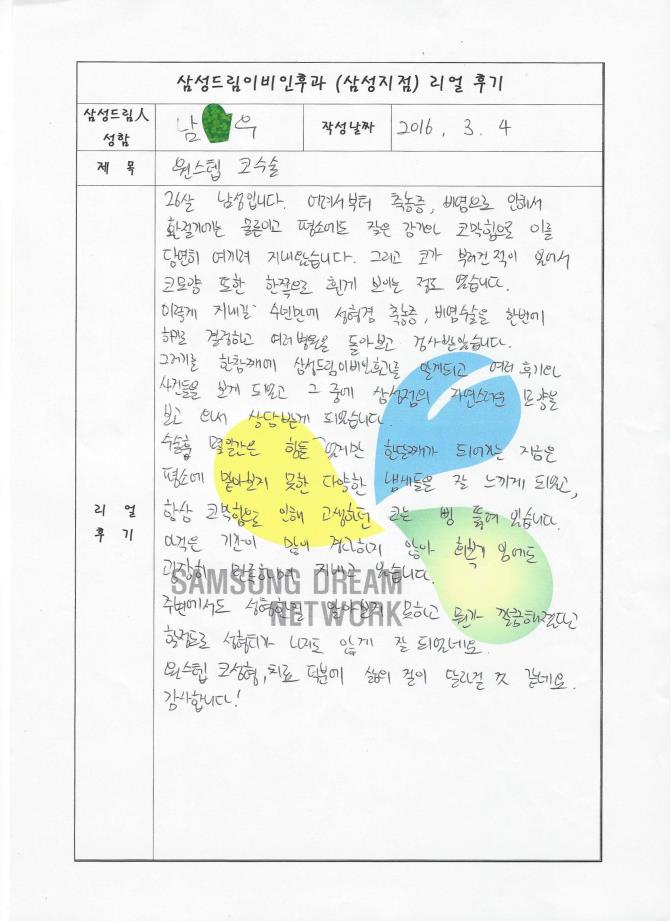 삼성드림이비인후과 (삼성지점) 리얼 후기
삼성드림人
성함
남 우
작성날짜
2016. 3. 4
제 목
원스텝 코수술
리 얼
후 기
26살 남성입니다. 어려서부터 축농증, 비염으로 인해서
환절기에는 물론이고 평소에도 잦은 감기와 코막힘으로 이를
당연히 여기며 지내왔습니다. 그리고 코가 부러진적이 있어서
코모양 또한 한쪽으로 휘게 보이는 정도 였습니다.
이렇게 지내길 수년만에 성형겸 축농증, 비염수술을 한번에
하기로 결정하고 여러병원을 돌아보고 검사받았습니다.
그러기를 한참째에 삼성드림이비인후과를 알게되고 여러 후기와
사진들을 보게 되었고 그 중에 삼성점의 자연스러운 모양을
보고 와서 상담받게 되었습니다.
수술후 몇일간은 힘들었지만 한달째가 되어가는 지금은
평소에 맡아보지 못한 다양한 냄새들을 잘 느끼게 되었고,
항상 코막힘으로 인해 고생하던 코는 뻥 뚫려 있습니다.
아직은 기간이 많이 경과하지 않아 회복기 임에도
굉장히 만족하며 지내고 있습니다.
SAMSUNG DREAM
NETWORK
주변에서도 성형한걸 알아보지 못하고 뭔가 깔끔해졌다고
할정도로 성형티가 나지도 않게 잘 되었네요.
원스텝 코성형, 치료 덕분에 삶의 질이 달라질 것 같네요.
감사합니다!